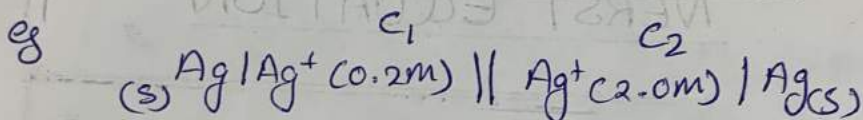 eg C₁ C₂
(s) Ag | Ag⁺ (0.2m) || Ag⁺ (2.0m) | Ag(s)